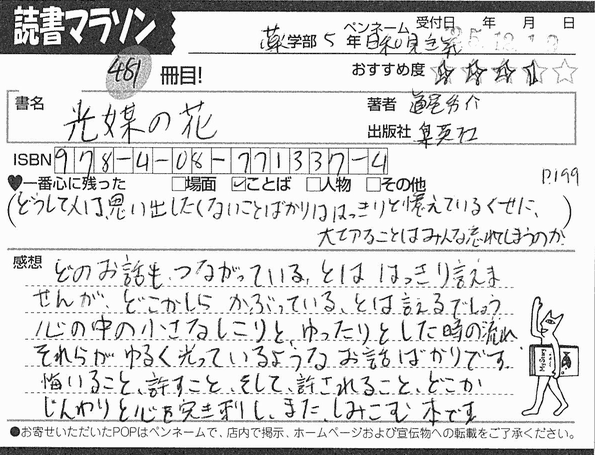 読書マラソン
481 冊目!
薬学部 5 年 ペンネーム
受付日 年 月 日
おすすめ度 ☆☆☆☆☆
書名
光媒の花
著者 道尾秀介
出版社 集英社
ISBN 978-4-08-771337-4
♥一番心に残った □場面 ☑ことば □人物 □その他 P.199
(どうして人は、思い出したくないことばかりははっきりと憶えているくせに、
大切なことはみんな忘れてしまうのか)
感想
どのお話も、つながっている、とは はっきり言えま
せんが、どこかしら かぶっている、とは言えるでしょう
心の中の小さなしこりと、ゆったりとした時の流れ
それらが ゆるく光っているような お話ばかりです。
悔いること、許すこと、そして、許されること、どこか
じんわりと心を突き刺し、また、しみこむ 本です
●お寄せいただいたPOPはペンネームで、店内で掲示、ホームページおよび宣伝物への転載をご了承ください。